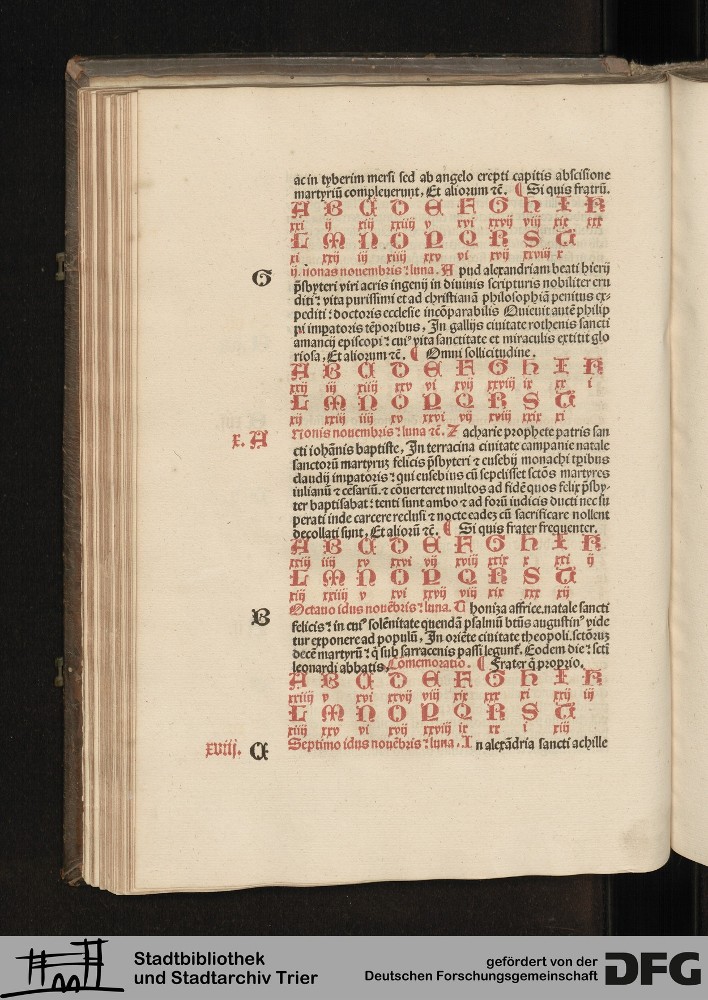 ac in tyberim mersi sed ab angelo erepti capitis abscisione
martyriū compleuerunt, Et aliorum ꝛc̄. ¶ Si quis fratrū.
A B C D E F G H I K
xxi ij xiij xxiiij v xvi xxvij viij xix xxx
L M N O P Q R S T
xi xxij iij xiiij xxv vi xvij xxviij x
G ij. nonas nouembris ⁊ luna. A pud alexandriam beati hierij
p̄sbyteri viri acris ingenij in diuinis scripturis nobiliter eru
diti ⁊ vita purissimi et ad christianā philosophiā penitus ex-
pediti ⁊ doctoris ecclesie incōparabilis Quieuit autē philip
pi impatoris tēporibus, In gallijs ciuitate rothenis sancti
amancij episcopi ⁊ cuiꝰ vita sanctitate et miraculis extitit glo
riosa, Et aliorum ꝛc̄. ¶ Omni sollicitudine.
A B C D E F G H I K
xxij iij xiiij xxv vi xvij xxviij ix xx i
L M N O P Q R S T
xij xxiij iiij xv xxvi vij xviij xxix xi
x. A Nonis nouembris ⁊ luna ꝛc̄. Z acharie prophete patris san
cti iohānis baptiste, In terracina ciuitate campanie natale
sanctorū martyruꝫ felicis p̄sbyteri ⁊ eusebij monachi tꝑibus
claudij impatoris ⁊ qui eusebius cū sepelisset sctōs martyres
iulianū ⁊ cesariū. ⁊ cōuerteret multos ad fidē quos felix p̄sby-
ter baptisabat ⁊ tenti sunt ambo ⁊ ad forū iudicis ducti nec su
perati inde carcere reclusi ⁊ nocte eadeꝫ cū sacrificare nollent
decollati sunt, Et aliorū ꝛc̄. ¶ Si quis frater frequenter.
A B C D E F G H I K
xxiij iiij xv xxvi vij xviij xxix x xxi ij
L M N O P Q R S T
xiij xxiiij v xvi xxvij viij xix xxx xij
B Octauo idus nouēbris ⁊ luna. T honiza affrice. natale sancti
felicis ⁊ in cuiꝰ solēnitate quendā psalmū btūs augustinꝰ vide
tur exponere ad populū, In oriēte ciuitate theopoli. sctōruꝫ
decē martyrū ⁊ q̄ sub sarracenis passi legunt̄. Eodem die ⁊ sctī
leonardi abbatis, Comemoratio. ¶ Frater q̄ proprio.
A B C D E F G H I K
xxiiij v xvi xxvij viij xix xxx xi xxij iij
L M N O P Q R S T
xiiij xxv vi xvij xxviij ix xx i xiij
xviij. C Septimo idus nouēbris ⁊ luna. I n alexādria sancti achille
Stadtbibliothek
und Stadtarchiv Trier
gefördert von der
Deutschen Forschungsgemeinschaft
DFG